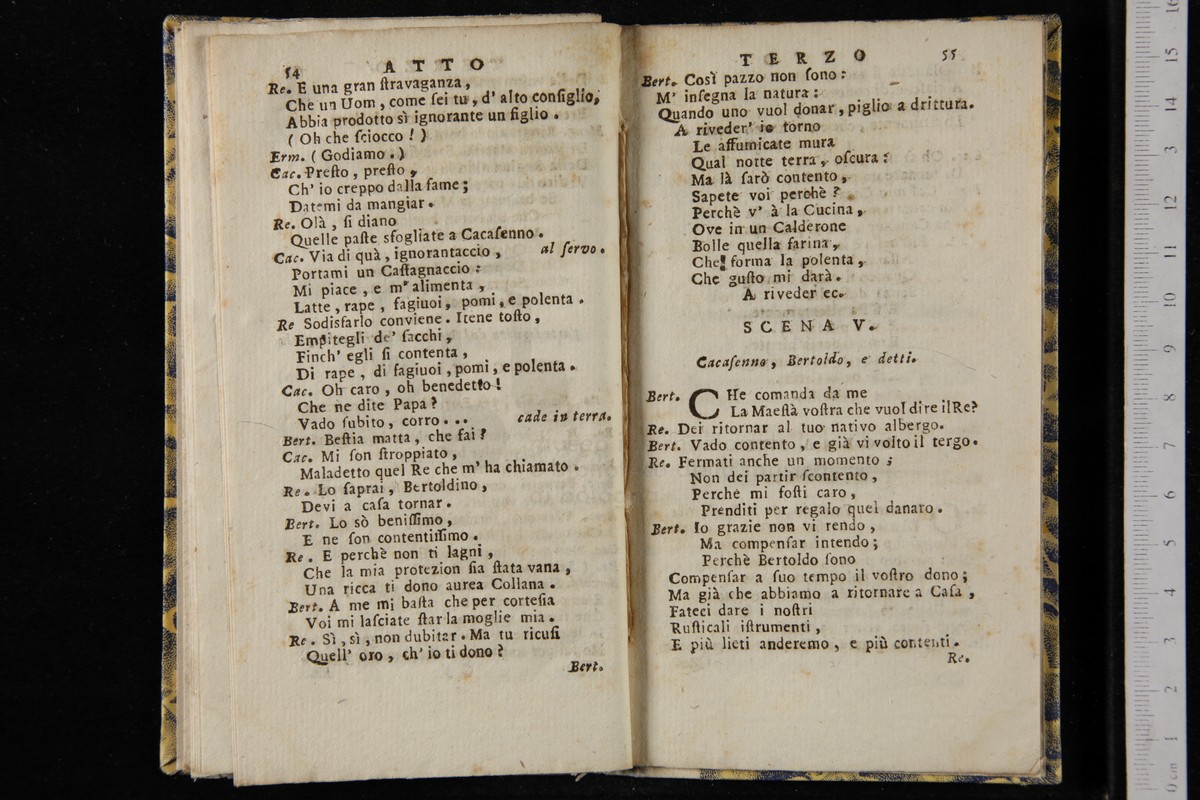 54 ATTO
Re. E una gran ſtravaganza,
Che un Uom, come ſei tu, d' alto conſiglio,
Abbia prodotto sì ignorante un figlio.
( Oh che ſciocco! )
Erm. ( Godiamo. )
Cac. Preſto, preſto,
Ch' io creppo dalla fame;
Datemi da mangiar.
Re. Olà, ſi diano
Quelle paſte sfogliate a Cacaſenno.
Cac. Via di quà, ignorantaccio, al ſervo.
Portami un Caſtagnaccio:
Mi piace, e m' alimenta,
Latte, rape, fagiuoi, pomi, e polenta.
Re Sodisfarlo conviene. Itene toſto,
Empitegli de' ſacchi,
Finch' egli ſi contenta,
Di rape, di fagiuoi, pomi, e polenta.
Cac. Oh caro, oh benedetto!
Che ne dite Papa?
Vado ſubito, corro... cade in terra.
Bert. Beſtia matta, che fai?
Cac. Mi ſon ſtroppiato,
Maladetto quel Re che m' ha chiamato.
Re. Lo ſaprai, Bertoldino,
Devi a caſa tornar.
Bert. Lo sò beniſſimo,
E ne ſon contentiſſimo.
Re. E perchè non ti lagni,
Che la mia protezion ſia ſtata vana,
Una ricca ti dono aurea Collana.
Bert. A me mi baſta che per corteſia
Voi mi laſciate ſtar la moglie mia.
Re. Sì, sì, non dubitar. Ma tu ricuſi
Quell' oro, ch' io ti dono?
Bert.
TERZO 55
Bert. Così pazzo non ſono:
M' inſegna la natura:
Quando uno vuol donar, piglio a drittura.
A riveder' io torno
Le affumicate mura
Qual notte terra, oſcura:
Ma là ſarò contento,
Sapete voi perchè?
Perchè v' à la Cucina,
Ove in un Calderone
Bolle quella farina,
Che forma la polenta,
Che guſto mi darà.
A riveder ec.
SCENA V.
Cacaſenno, Bertoldo, e detti.
Bert. CHe comanda da me
La Maeſtà voſtra che vuol dire il Re?
Re. Dei ritornar al tuo nativo albergo.
Bert. Vado contento, e già vi volto il tergo.
Re. Fermati anche un momento;
Non dei partir ſcontento,
Perche mi foſti caro,
Prenditi per regalo quel danaro.
Bert. Io grazie non vi rendo,
Ma compenſar intendo;
Perchè Bertoldo ſono
Compenſar a ſuo tempo il voſtro dono;
Ma già che abbiamo a ritornare a Caſa,
Fateci dare i noſtri
Ruſticali iſtrumenti,
E più lieti anderemo, e più contenti.
Re.
0 cm 1 2 3 4 5 6 7 8 9 10 11 12 13 14 15 16